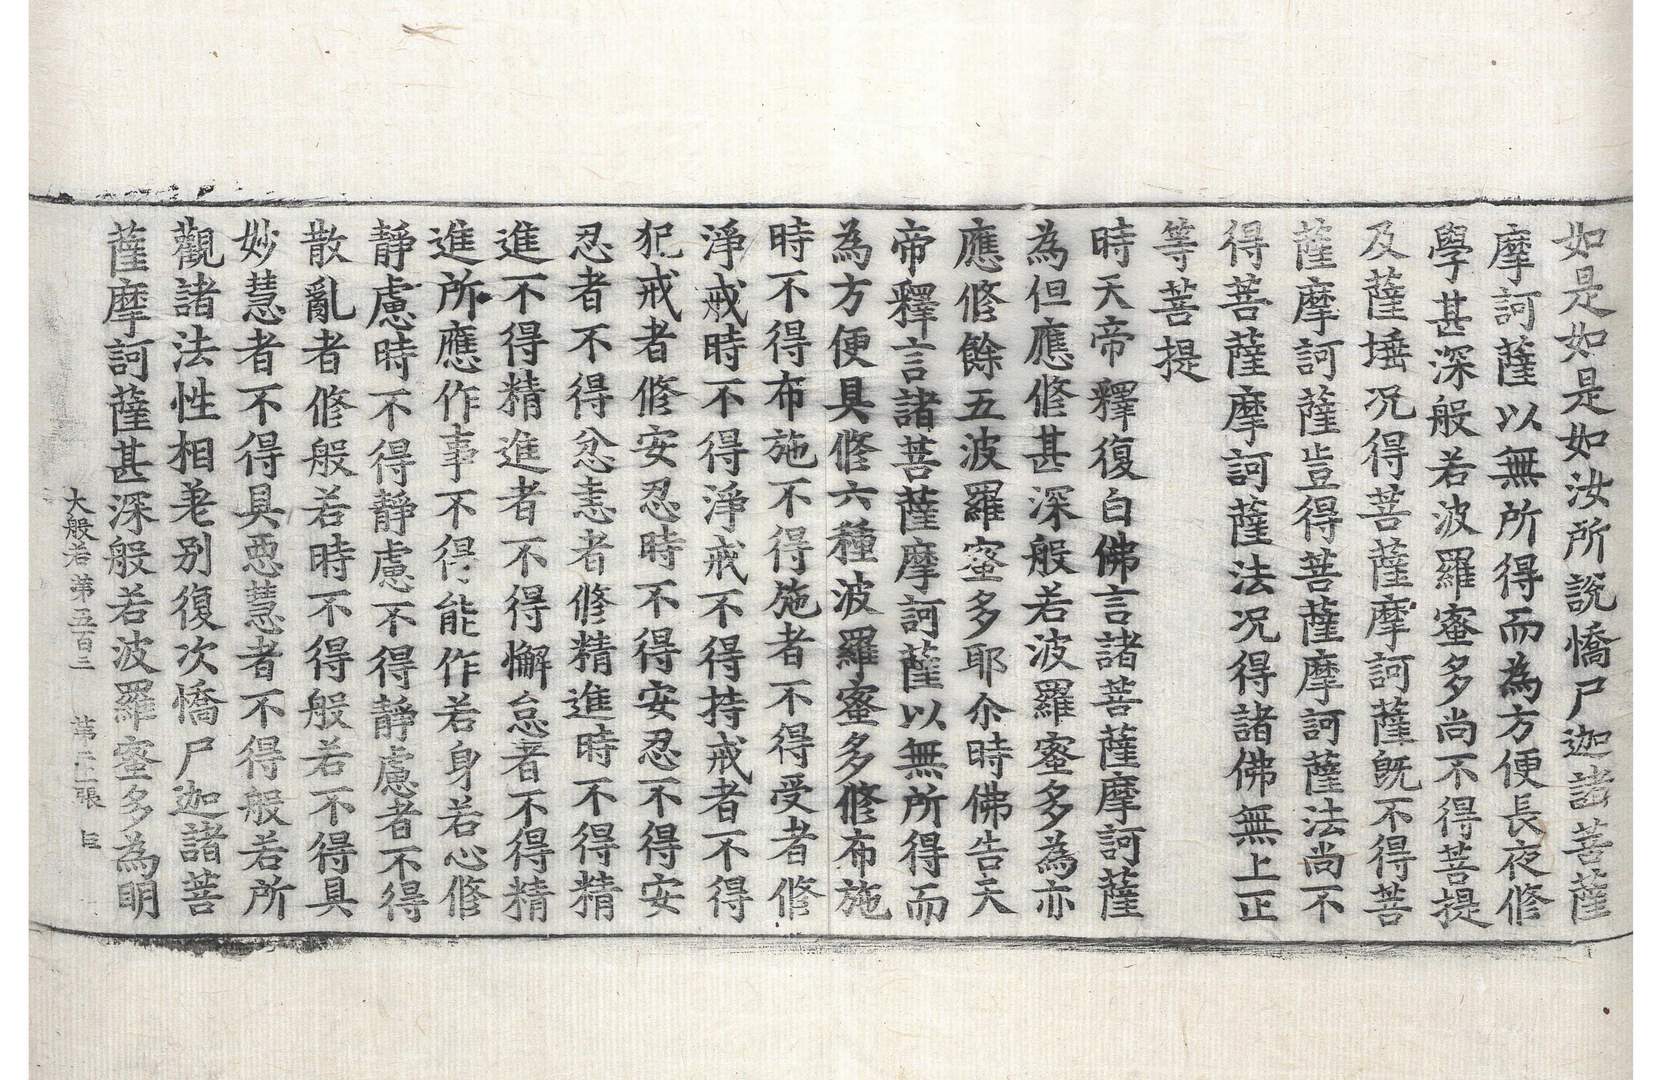 如是如是如汝所說憍尸迦諸菩薩
摩訶薩以無所得而為方便長夜修
學甚深般若波羅蜜多尚不得菩提
及薩埵况得菩薩摩訶薩旣不得菩
薩摩訶薩豈得菩薩摩訶薩法尚不
得菩薩摩訶薩法况得諸佛無上正
等菩提
時天帝釋復白佛言諸菩薩摩訶薩
為但應修甚深般若波羅蜜多為亦
應修餘五波羅蜜多耶尒時佛告天
帝釋言諸菩薩摩訶薩以無所得而
為方便具修六種波羅蜜多修布施
時不得布施不得施者不得受者修
淨戒時不得淨戒不得持戒者不得
犯戒者修安忍時不得安忍不得安
忍者不得忿恚者修精進時不得精
進不得精進者不得懈怠者不得精
進所應作事不得能作若身若心修
靜慮時不得靜慮不得靜慮者不得
散亂者修般若時不得般若不得具
妙慧者不得具惡慧者不得般若所
觀諸法性相差别復次憍尸迦諸菩
薩摩訶薩甚深般若波羅蜜多為明
大般若第五百三 第 張